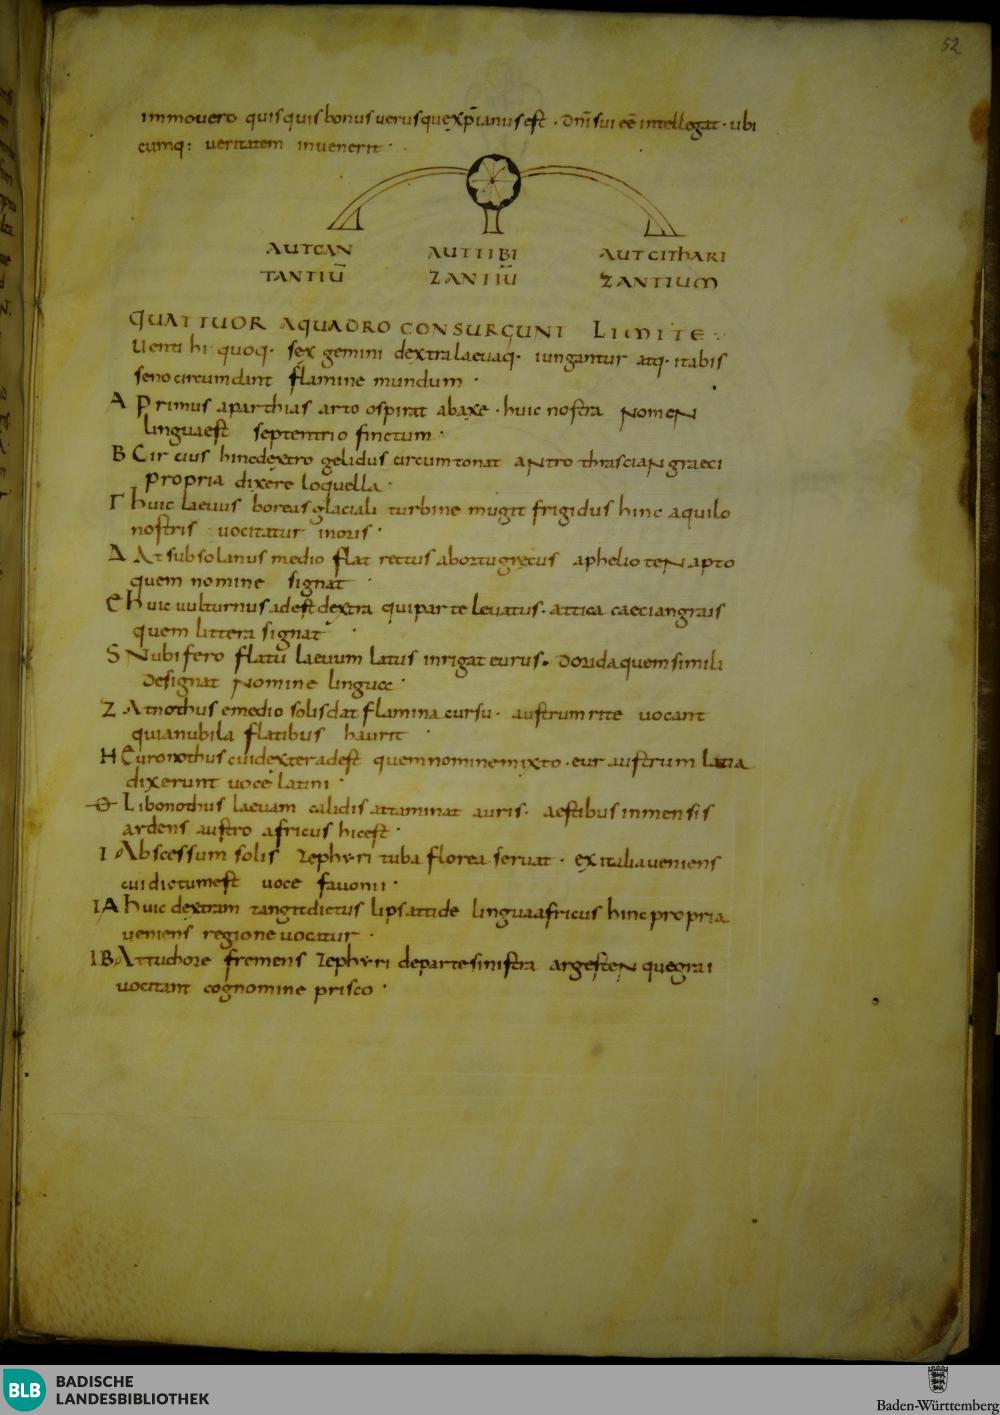 52
immovero quisquis bonus verusque xp̄ianus est · dn̄i sui eē intellegat · ubi
cumq: veritatem invenerit ·
AUT CAN
TANTIŪ
AUT TIBI
ZANTIŪ
AUT CITHARI
ZANTIUM
QUATTUOR A QUADRO CONSURGUNT LIMITE
Uenti hi quoq· sex gemini dextra laevaq· iungantur atq· ita bis
seno circumdant flamine mundum ·
A Primus aparthias arto ospirat abaxe · huic nostra nomen
lingua est septentrio finctum ·
B Circius hinc dextro gelidus circumtonat antro thrascian graeci
propria dixere loquella ·
Γ huic laevus boreas glaciali turbine mugit frigidus hinc aquilo
nostris vocitatur in oris ·
Δ At subsolanus medio flat rectus ab ortu grecus aphelioten apto
quem nomine signat ·
E huic vulturnus adest dextra qui parte levatus · attica caecian grais
quem littera signat ·
S Nubifero flatū laevum latus inrigat eurus · dorida quem simili
designat nomine lingua ·
Z At nothus e medio solis dat flamina cursu · austrum rite vocant
quia nubila flatibus haurit ·
H Euronothus cui dexter adest quem nomine mixto · eur austrum latia
dixerunt voce latini ·
Θ Libonothus laevam calidis attaminat auris · aestibus inmensis
ardens austro africus hic est ·
I Abscessum solis zephyri tuba florea servat · ex italia veniens
cui dictum est voce favonii ·
IA huic dextram tangit dictus lips attide lingua africus hinc propria
veniens regione vocatur ·
IB At tu chore fremens zephyri de parte sinistra argesten que grai
vocitant cognomine prisco ·
BLB
BADISCHE
LANDESBIBLIOTHEK
Baden-Württemberg